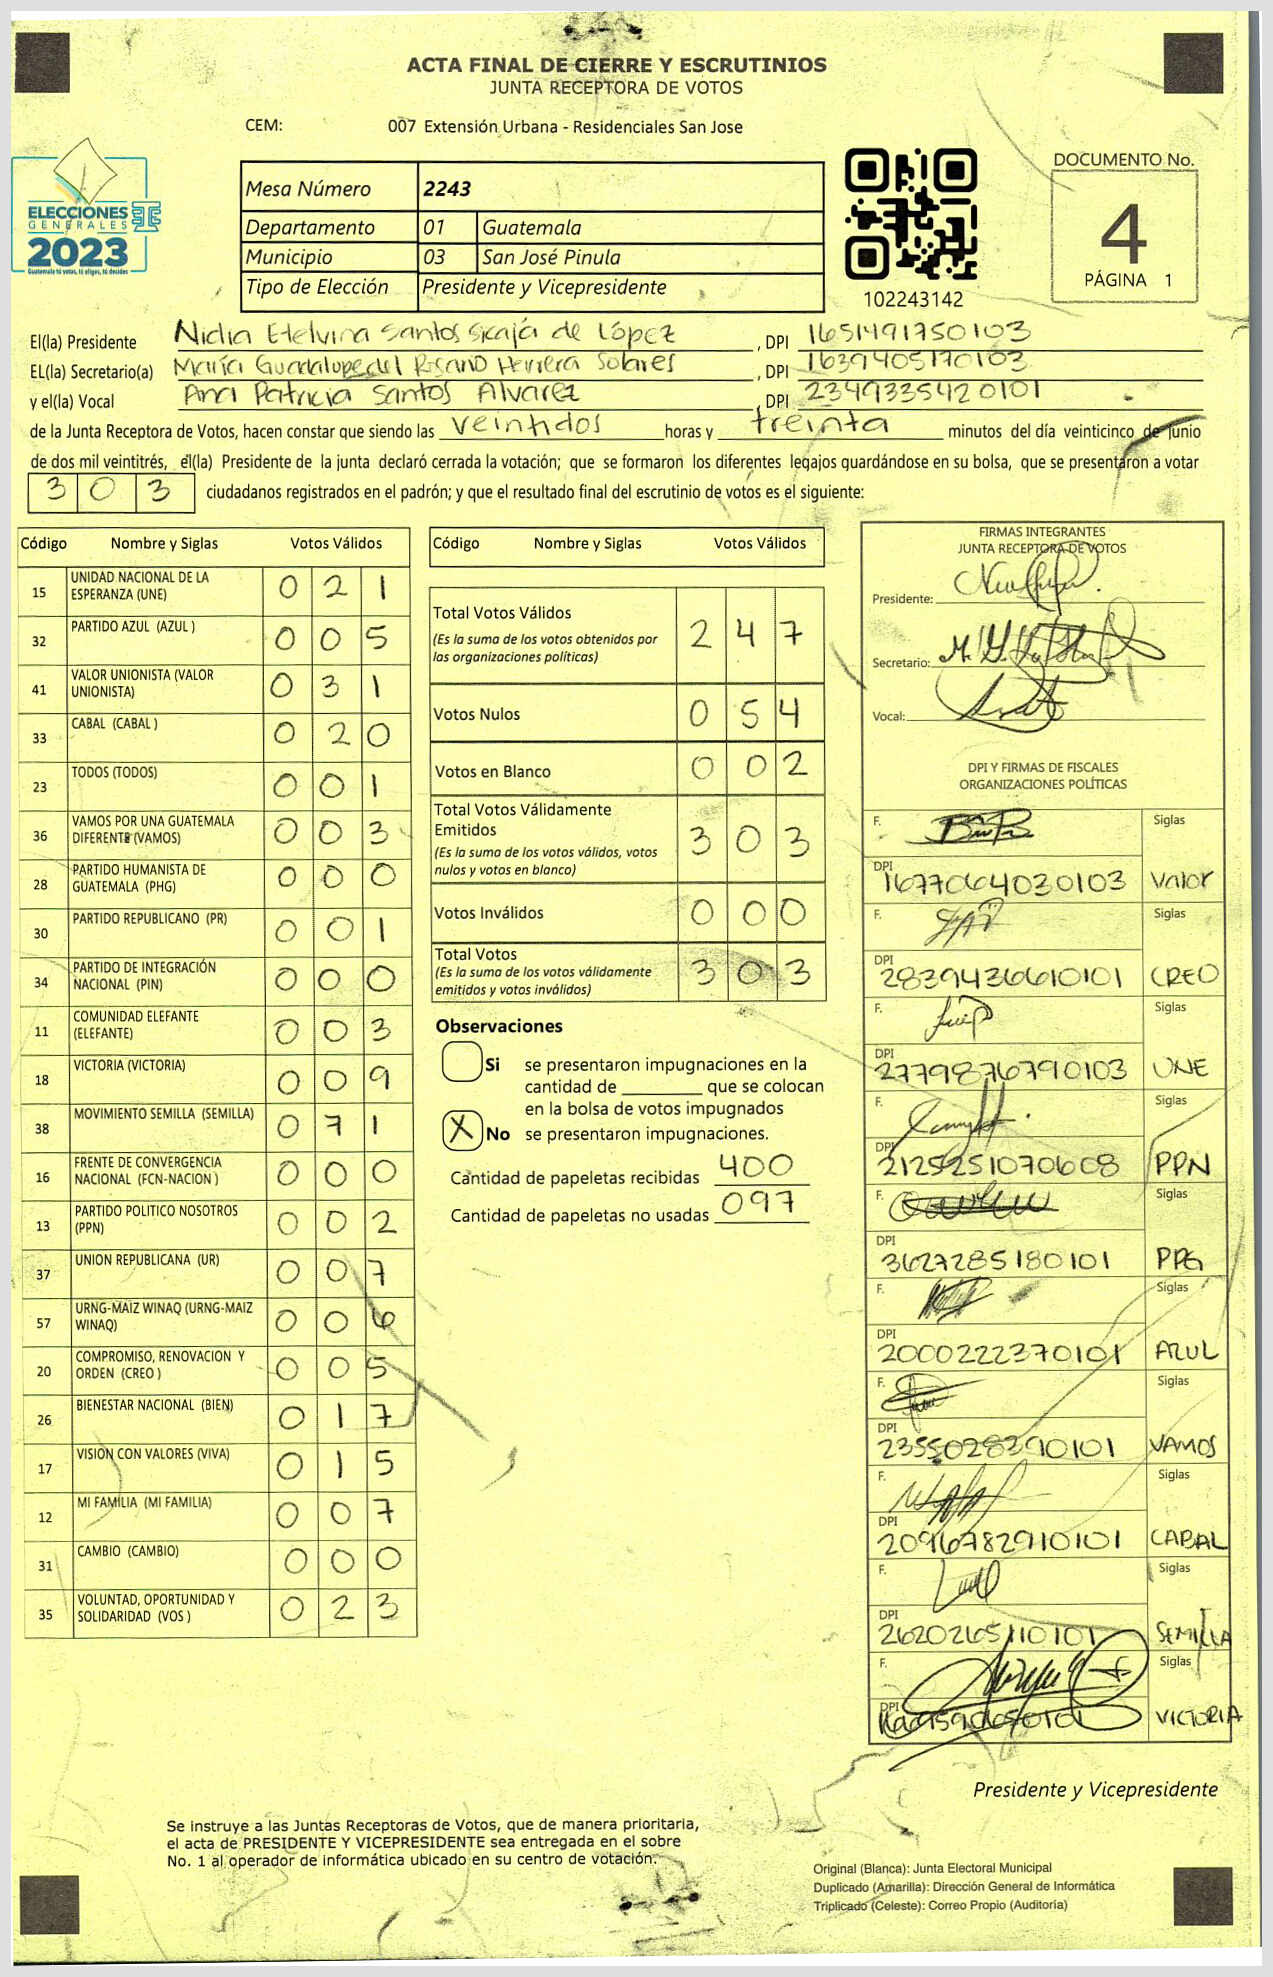 ACTA FINAL DE CIERRE Y ESCRUTINIOS
JUNTA RECEPTORA DE VOTOS
CEM: 007 Extensión Urbana - Residenciales San Jose
ELECCIONES
GENERALES
2023
Guatemala tú votas, tú eliges, tú decides
Mesa Número 2243
Departamento 01 Guatemala
Municipio 03 San José Pinula
Tipo de Elección Presidente y Vicepresidente
102243142
DOCUMENTO No.
4
PÁGINA 1
El(la) Presidente Nidia Etelvina Santos Sicajá de López, DPI 1651491750103
EL(la) Secretario(a) María Guadalupe del Rosario Herrera Solares, DPI 1639405170103
y el(la) Vocal Ana Patricia Santos Alvarez, DPI 2349335420101
de la Junta Receptora de Votos, hacen constar que siendo las veintidos horas y treinta minutos del día veinticinco de junio
de dos mil veintitrés, el(la) Presidente de la junta declaró cerrada la votación; que se formaron los diferentes legajos guardándose en su bolsa, que se presentaron a votar
303 ciudadanos registrados en el padrón; y que el resultado final del escrutinio de votos es el siguiente:
Código Nombre y Siglas Votos Válidos
15 UNIDAD NACIONAL DE LA ESPERANZA (UNE) 0 2 1
32 PARTIDO AZUL (AZUL ) 0 0 5
41 VALOR UNIONISTA (VALOR UNIONISTA) 0 3 1
33 CABAL (CABAL ) 0 2 0
23 TODOS (TODOS) 0 0 1
36 VAMOS POR UNA GUATEMALA DIFERENTE (VAMOS) 0 0 3
28 PARTIDO HUMANISTA DE GUATEMALA (PHG) 0 0 0
30 PARTIDO REPUBLICANO (PR) 0 0 1
34 PARTIDO DE INTEGRACIÓN NACIONAL (PIN) 0 0 0
11 COMUNIDAD ELEFANTE (ELEFANTE) 0 0 3
18 VICTORIA (VICTORIA) 0 0 9
38 MOVIMIENTO SEMILLA (SEMILLA) 0 7 1
16 FRENTE DE CONVERGENCIA NACIONAL (FCN-NACION ) 0 0 0
13 PARTIDO POLITICO NOSOTROS (PPN) 0 0 2
37 UNION REPUBLICANA (UR) 0 0 7
57 URNG-MAIZ WINAQ (URNG-MAIZ WINAQ) 0 0 6
20 COMPROMISO, RENOVACION Y ORDEN (CREO ) 0 0 5
26 BIENESTAR NACIONAL (BIEN) 0 1 7
17 VISION CON VALORES (VIVA) 0 1 5
12 MI FAMILIA (MI FAMILIA) 0 0 7
31 CAMBIO (CAMBIO) 0 0 0
35 VOLUNTAD, OPORTUNIDAD Y SOLIDARIDAD (VOS ) 0 2 3
Código Nombre y Siglas Votos Válidos
Total Votos Válidos 2 4 7
(Es la suma de los votos obtenidos por las organizaciones políticas)
Votos Nulos 0 5 4
Votos en Blanco 0 0 2
Total Votos Válidamente Emitidos 3 0 3
(Es la suma de los votos válidos, votos nulos y votos en blanco)
Votos Inválidos 0 0 0
Total Votos 3 0 3
(Es la suma de los votos válidamente emitidos y votos inválidos)
Observaciones
Si se presentaron impugnaciones en la
cantidad de ________ que se colocan
en la bolsa de votos impugnados
X No se presentaron impugnaciones.
Cantidad de papeletas recibidas 400
Cantidad de papeletas no usadas 097
FIRMAS INTEGRANTES
JUNTA RECEPTORA DE VOTOS
Presidente:
Secretario:
Vocal:
DPI Y FIRMAS DE FISCALES
ORGANIZACIONES POLÍTICAS
F. Siglas
DPI 1677064030103 Valor
F. Siglas
DPI 2839436610101 CREO
F. Siglas
DPI 2779876790103 UNE
F. Siglas
DPI 2125251070608 PPN
F. Siglas
DPI 3627285180101 PPG
F. Siglas
DPI 2000222370101 AZUL
F. Siglas
DPI 2355028390101 VAMOS
F. Siglas
DPI 2096782910101 CABAL
F. Siglas
DPI 2620265110101 SEMILLA
F. Siglas
DPI VICTORIA
Presidente y Vicepresidente
Se instruye a las Juntas Receptoras de Votos, que de manera prioritaria,
el acta de PRESIDENTE Y VICEPRESIDENTE sea entregada en el sobre
No. 1 al operador de informática ubicado en su centro de votación.
Original (Blanca): Junta Electoral Municipal
Duplicado (Amarilla): Dirección General de Informática
Triplicado (Celeste): Correo Propio (Auditoría)